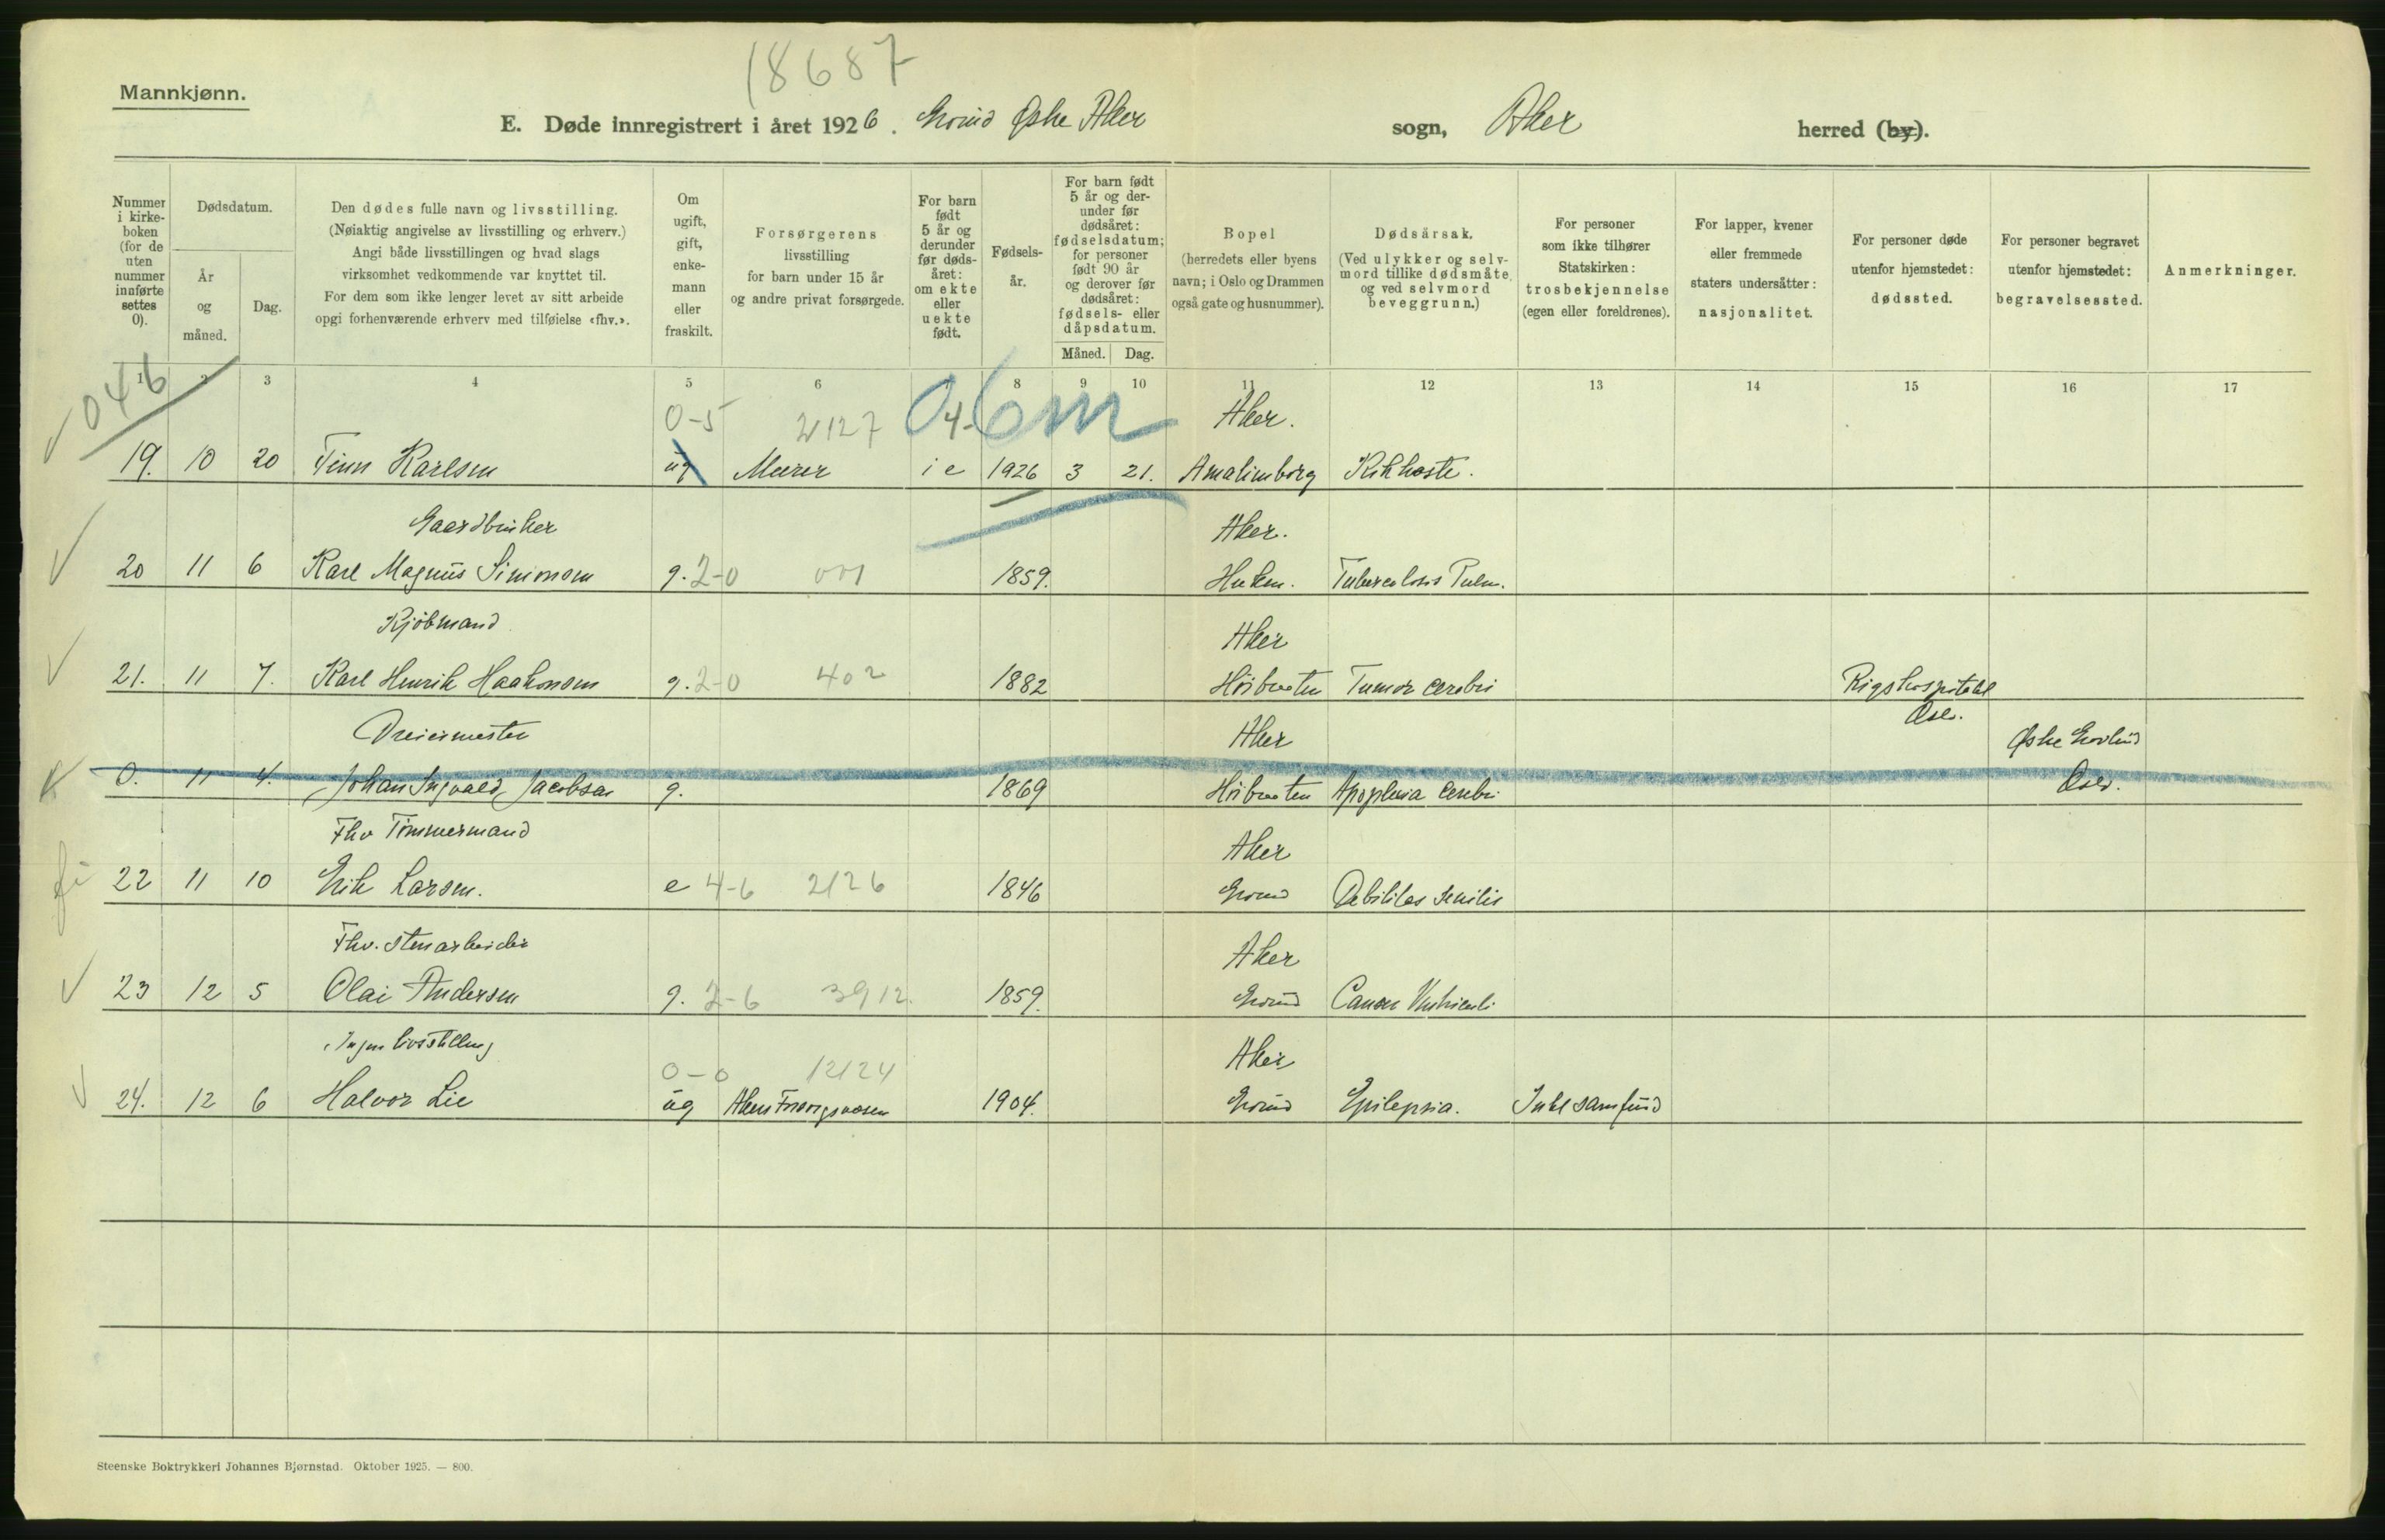 18687
Mannkjønn.
E. Døde innregistrert i året 1926. Grorud Østre Aker sogn, Aker herred (by).
Nummer i kirke-boken (for de uten nummer innførte settes 0).
Dødsdatum.
År og måned.
Dag.
Den dødes fulle navn og livsstilling.
(Nøiaktig angivelse av livsstilling og erhverv.)
Angi både livsstillingen og hvad slags
virksomhet vedkommende var knyttet til.
For dem som ikke lenger levet av sitt arbeide
opgi forhenværende erhverv med tilføielse «fhv.».
Om ugift, gift, enke-mann eller fraskilt.
Forsørgerens
livsstilling
for barn under 15 år
og andre privat forsørgede.
For barn født 5 år og derunder før døds-året: om ekte eller uekte født.
Fødsels-år.
For barn født 5 år og der-under før dødsåret: fødselsdatum; for personer født 90 år og derover før dødsåret: fødsels- eller dåpsdatum.
Måned. Dag.
Bopel
(herredets eller byens
navn; i Oslo og Drammen
også gate og husnummer).
Dødsårsak.
(Ved ulykker og selv-
mord tillike dødsmåte
og ved selvmord
beveggrunn.)
For personer
som ikke tilhører
Statskirken:
trosbekjennelse
(egen eller foreldrenes).
For lapper, kvener
eller fremmede
staters undersåtter:
nasjonalitet.
For personer døde
utenfor hjemstedet:
dødssted.
For personer begravet
utenfor hjemstedet:
begravelsessted.
Anmerkninger.
1 2 3 4 5 6 8 9 10 11 12 13 14 15 16 17
046
0-5 2127 04-6m Aker.
19. 10 20 Finn Karlsen ug Murer i e 1926 3 21. Amalienborg Kikhoste.
Gaardbruker Aker.
20 11 6 Karl Magnus Simonsen g. 2-0 001 1859. Huken. Tuberculosis Pulm.
Kjøbmand Aker
21. 11 7. Karl Henrik Haakonsen g. 2-0 402 1882 Høibraaten Tumor cerebri Rigshospitalet
Oslo.
Dreiermester Aker Østre Gravlund
0. 11 4. Johan Ingvald Jacobsen g. 1869 Høibraaten Apoplexia cerebri Oslo.
Fhv Tømmermand Aker
22 11 10 Erik Larsen. e 4-6 2126 1846 Grorud Debilitas senilis
Fhv. stenarbeider Aker
23 12 5 Olai Andersen g. 2-6 3912. 1859. Grorud Cancer Ventriculi
Ingen livsstilling Aker
0-0 12124
24. 12 6 Halvor Lie ug Akers Forsorgsvæsen 1904. Grorud Epilepsia. Intet samfund
Steenske Boktrykkeri Johannes Bjørnstad. Oktober 1925. — 800.